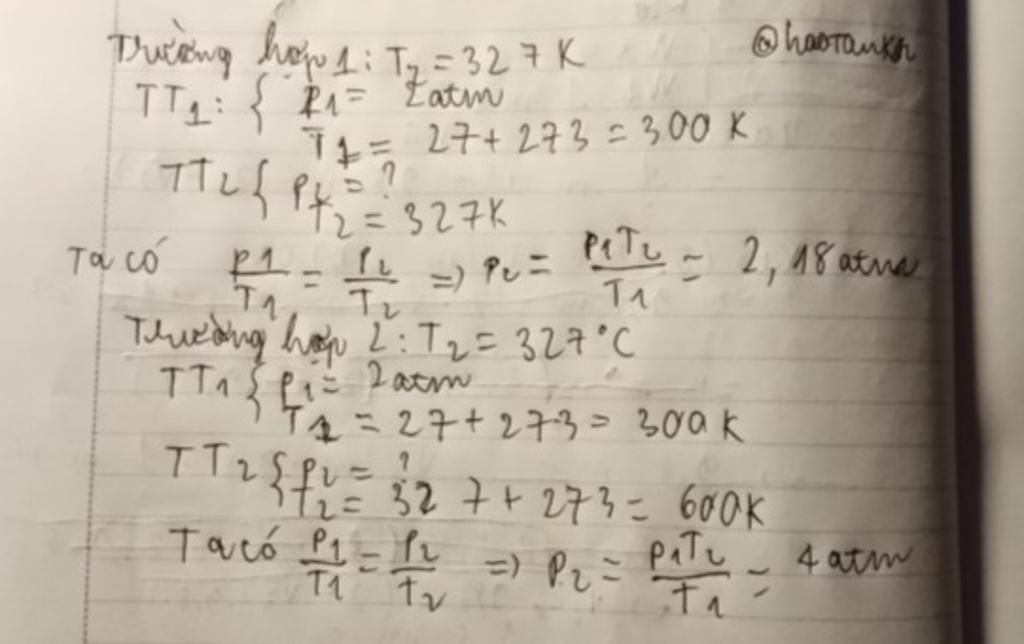 Trường hợp 1: T2 = 327K @haoTauKsh
TT1: { p1 = 2atm
T1 = 27 + 273 = 300 K
TT2 { P2 = ?
T2 = 327K
Ta có p1/T1 = p2/T2 => p2 = p1T2/T1 = 2,18 atm
Trường hợp 2: T2 = 327°C
TT1 { p1 = 2atm
T1 = 27 + 273 = 300 K
TT2 { p2 = ?
T2 = 327 + 273 = 600K
Ta có p1/T1 = p2/T2 => p2 = p1T2/T1 = 4 atm